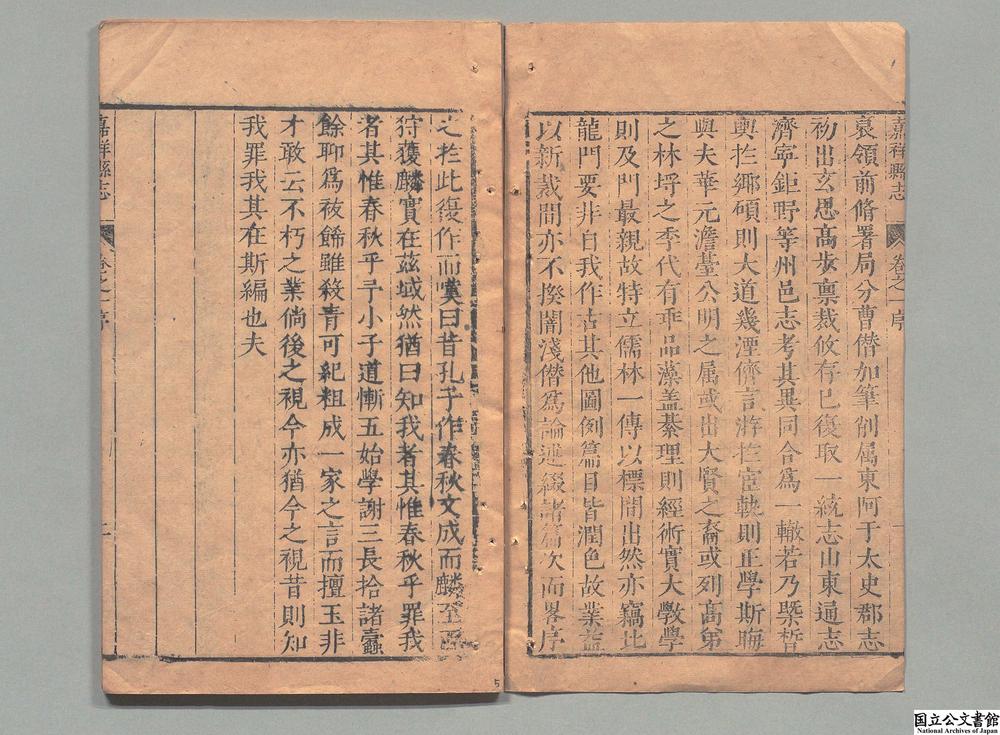 嘉祥縣志
卷之一序
一
裒領前脩署局分曹僣加筆削属東阿于太史郡志
初出玄思髙步禀裁攸存已復取一統志山東通志
濟寧鉅野等州邑志考其異同合爲一轍若乃槩晳
輿扵鄉碩則大道幾湮儕言游扵宦執則正學斯晦
與夫華元澹臺公明之属或出大賢之裔或列髙第
之林埓之季代有乖品藻盖綦理則經術實大斆學
則及門最親故特立儒林一傳以標開出然亦竊比
龍門要非自我作古其他圖例篇目皆潤色故業益
以新裁間亦不揆闇淺僣爲論述綴諸篇次而畧序
之扵此復作而嘆曰昔孔子作春秋文成而麟至西
狩獲麟實在茲域然猶曰知我者其惟春秋乎罪我
者其惟春秋乎予小子道慚五始學謝三長拾諸蠹
餘聊爲裓餙雖殺青可紀粗成一家之言而擅玉非
才敢云不朽之業倘後之視今亦猶今之視昔則知
我罪我其在斯編也夫
嘉祥縣志
卷之一序
二
5
国立公文書館
National Archives of Japan